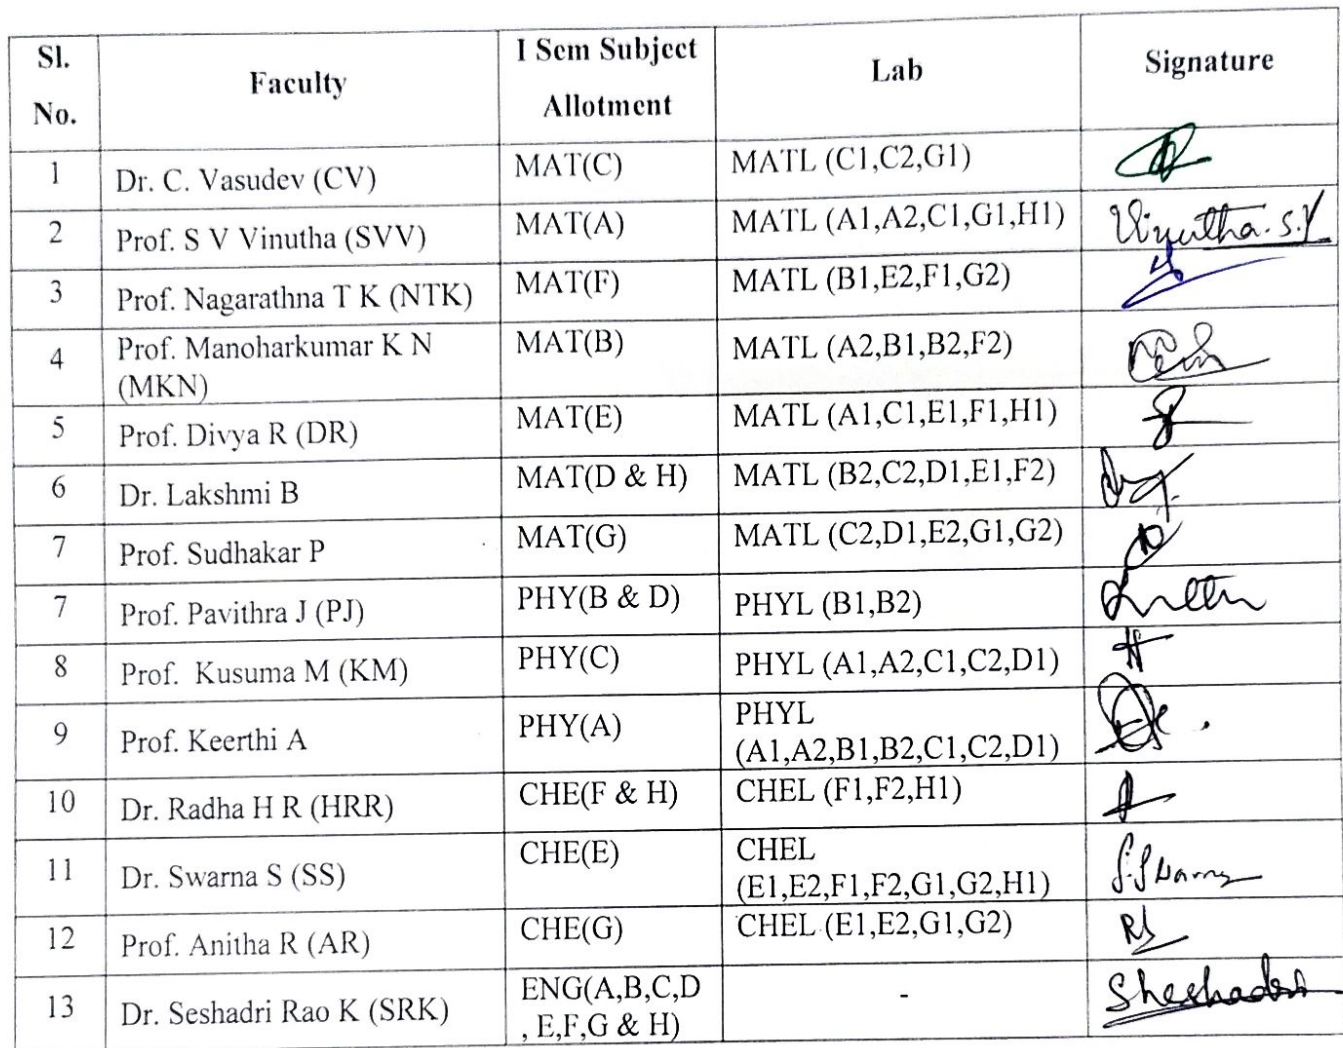 Sl. No. Faculty I Sem Subject Allotment Lab Signature
1 Dr. C. Vasudev (CV) MAT(C) MATL (C1,C2,G1)
2 Prof. S V Vinutha (SVV) MAT(A) MATL (A1,A2,C1,G1,H1) Vinutha.S.V
3 Prof. Nagarathna T K (NTK) MAT(F) MATL (B1,E2,F1,G2)
4 Prof. Manoharkumar K N (MKN) MAT(B) MATL (A2,B1,B2,F2)
5 Prof. Divya R (DR) MAT(E) MATL (A1,C1,E1,F1,H1)
6 Dr. Lakshmi B MAT(D & H) MATL (B2,C2,D1,E1,F2)
7 Prof. Sudhakar P MAT(G) MATL (C2,D1,E2,G1,G2)
7 Prof. Pavithra J (PJ) PHY(B & D) PHYL (B1,B2)
8 Prof. Kusuma M (KM) PHY(C) PHYL (A1,A2,C1,C2,D1)
9 Prof. Keerthi A PHY(A) PHYL (A1,A2,B1,B2,C1,C2,D1)
10 Dr. Radha H R (HRR) CHE(F & H) CHEL (F1,F2,H1)
11 Dr. Swarna S (SS) CHE(E) CHEL (E1,E2,F1,F2,G1,G2,H1)
12 Prof. Anitha R (AR) CHE(G) CHEL (E1,E2,G1,G2)
13 Dr. Seshadri Rao K (SRK) ENG(A,B,C,D , E,F,G & H) - Sheshadri